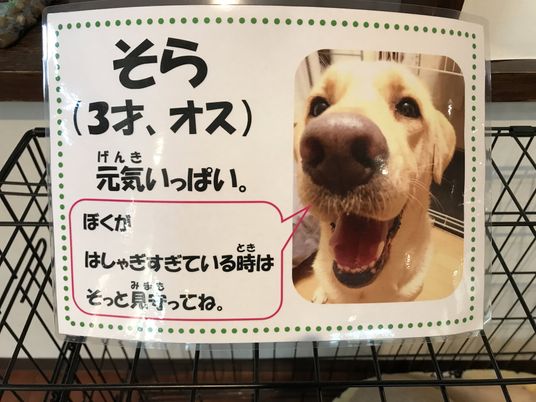 そら
(3才、オス)
げんき
元気いっぱい。
ぼくが
とき
はしゃぎすぎている時は
みまも
そっと見守ってね。